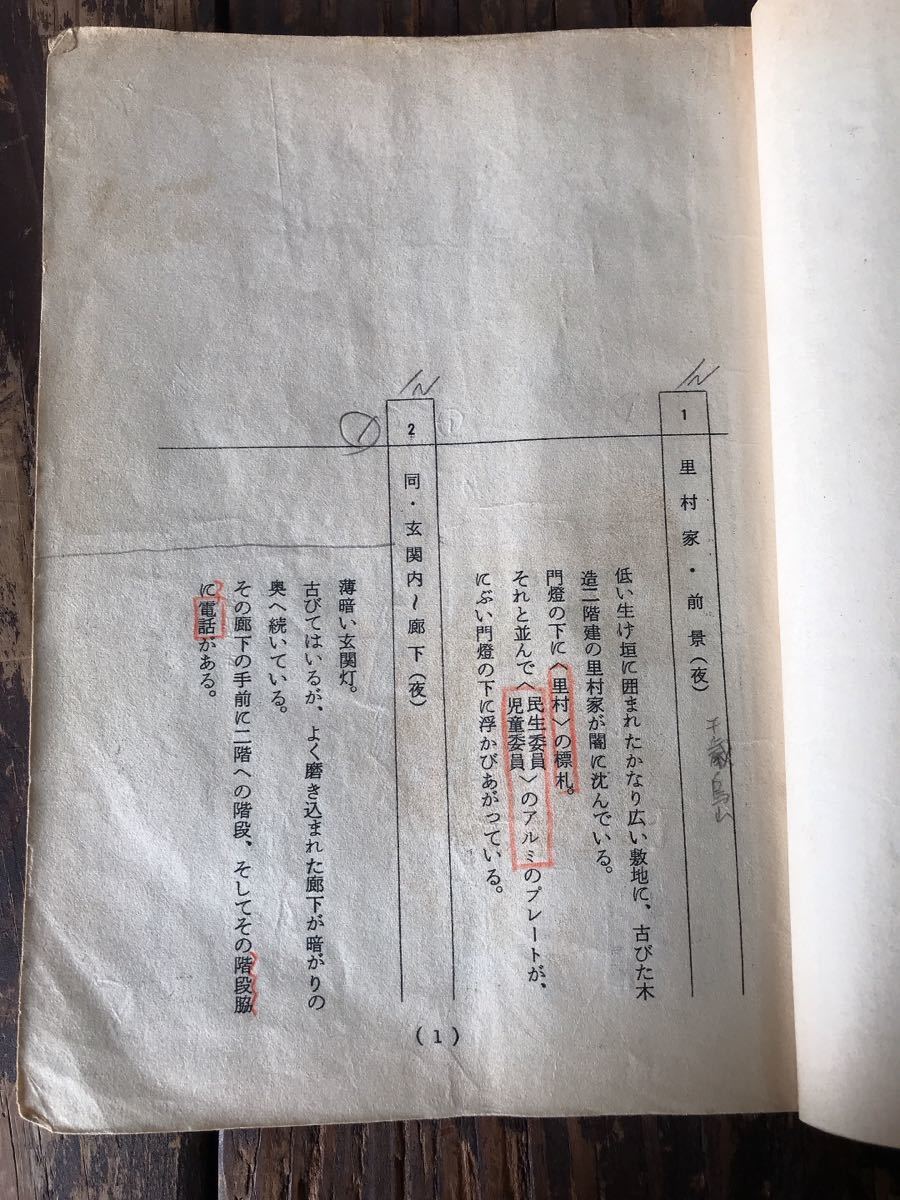 1 里村家・前景(夜)
低い生け垣に囲まれたかなり広い敷地に、古びた木
造二階建の里村家が闇に沈んでいる。
門燈の下に〈里村〉の標札。
それと並んで〈民生委員
児童委員〉のアルミのプレートが、
にぶい門燈の下に浮かびあがっている。
2 同・玄関内〜廊下(夜)
薄暗い玄関灯。
古びてはいるが、よく磨き込まれた廊下が暗がりの
奥へ続いている。
その廊下の手前に二階への階段、そしてその階段脇
に電話がある。
(1)